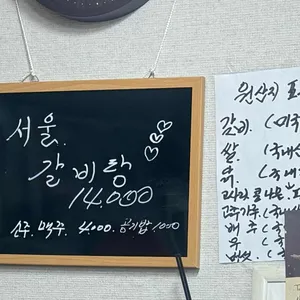 서울.
갈비탕
14.000
소주. 맥주. 4.000. 공기밥 1.000
원산지 표
갈비. (미국
쌀. (국내산
(국내
고사리 콩나물
고추가루. (국
배추 (국
무 (국
버섯. (